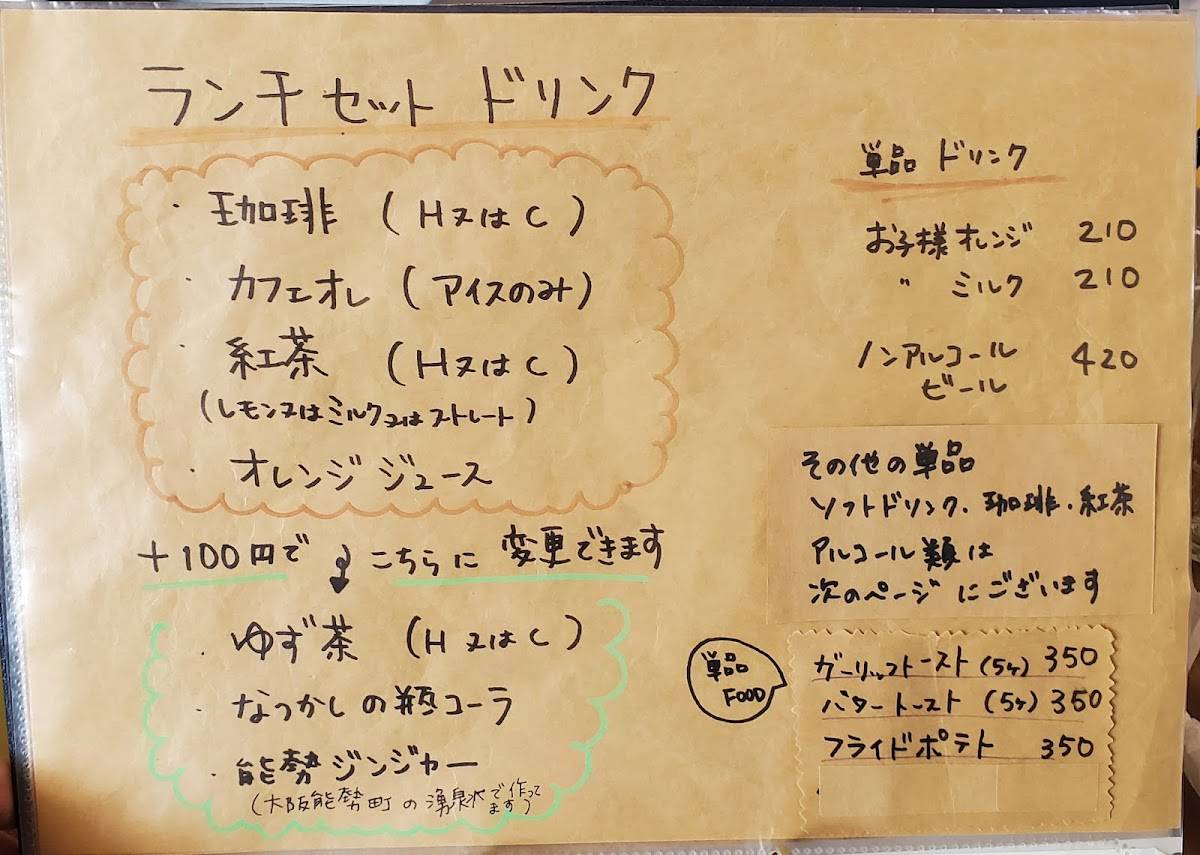 ランチセット ドリンク
・珈琲 (H又はC)
・カフェオレ (アイスのみ)
・紅茶 (H又はC)
(レモン又はミルク又はストレート)
・オレンジジュース
+100円で こちらに変更できます
・ゆず茶 (H又はC)
・なつかしの瓶コーラ
・能勢ジンジャー
(大阪能勢町の湧泉水で作ってます)
単品 ドリンク
お子様オレンジ 210
〃 ミルク 210
ノンアルコール 420
ビール
その他の単品
ソフトドリンク・珈琲・紅茶
アルコール類は
次のページにございます
単品
FOOD
ガーリックトースト(5ヶ) 350
バタートースト (5ヶ) 350
フライドポテト 350